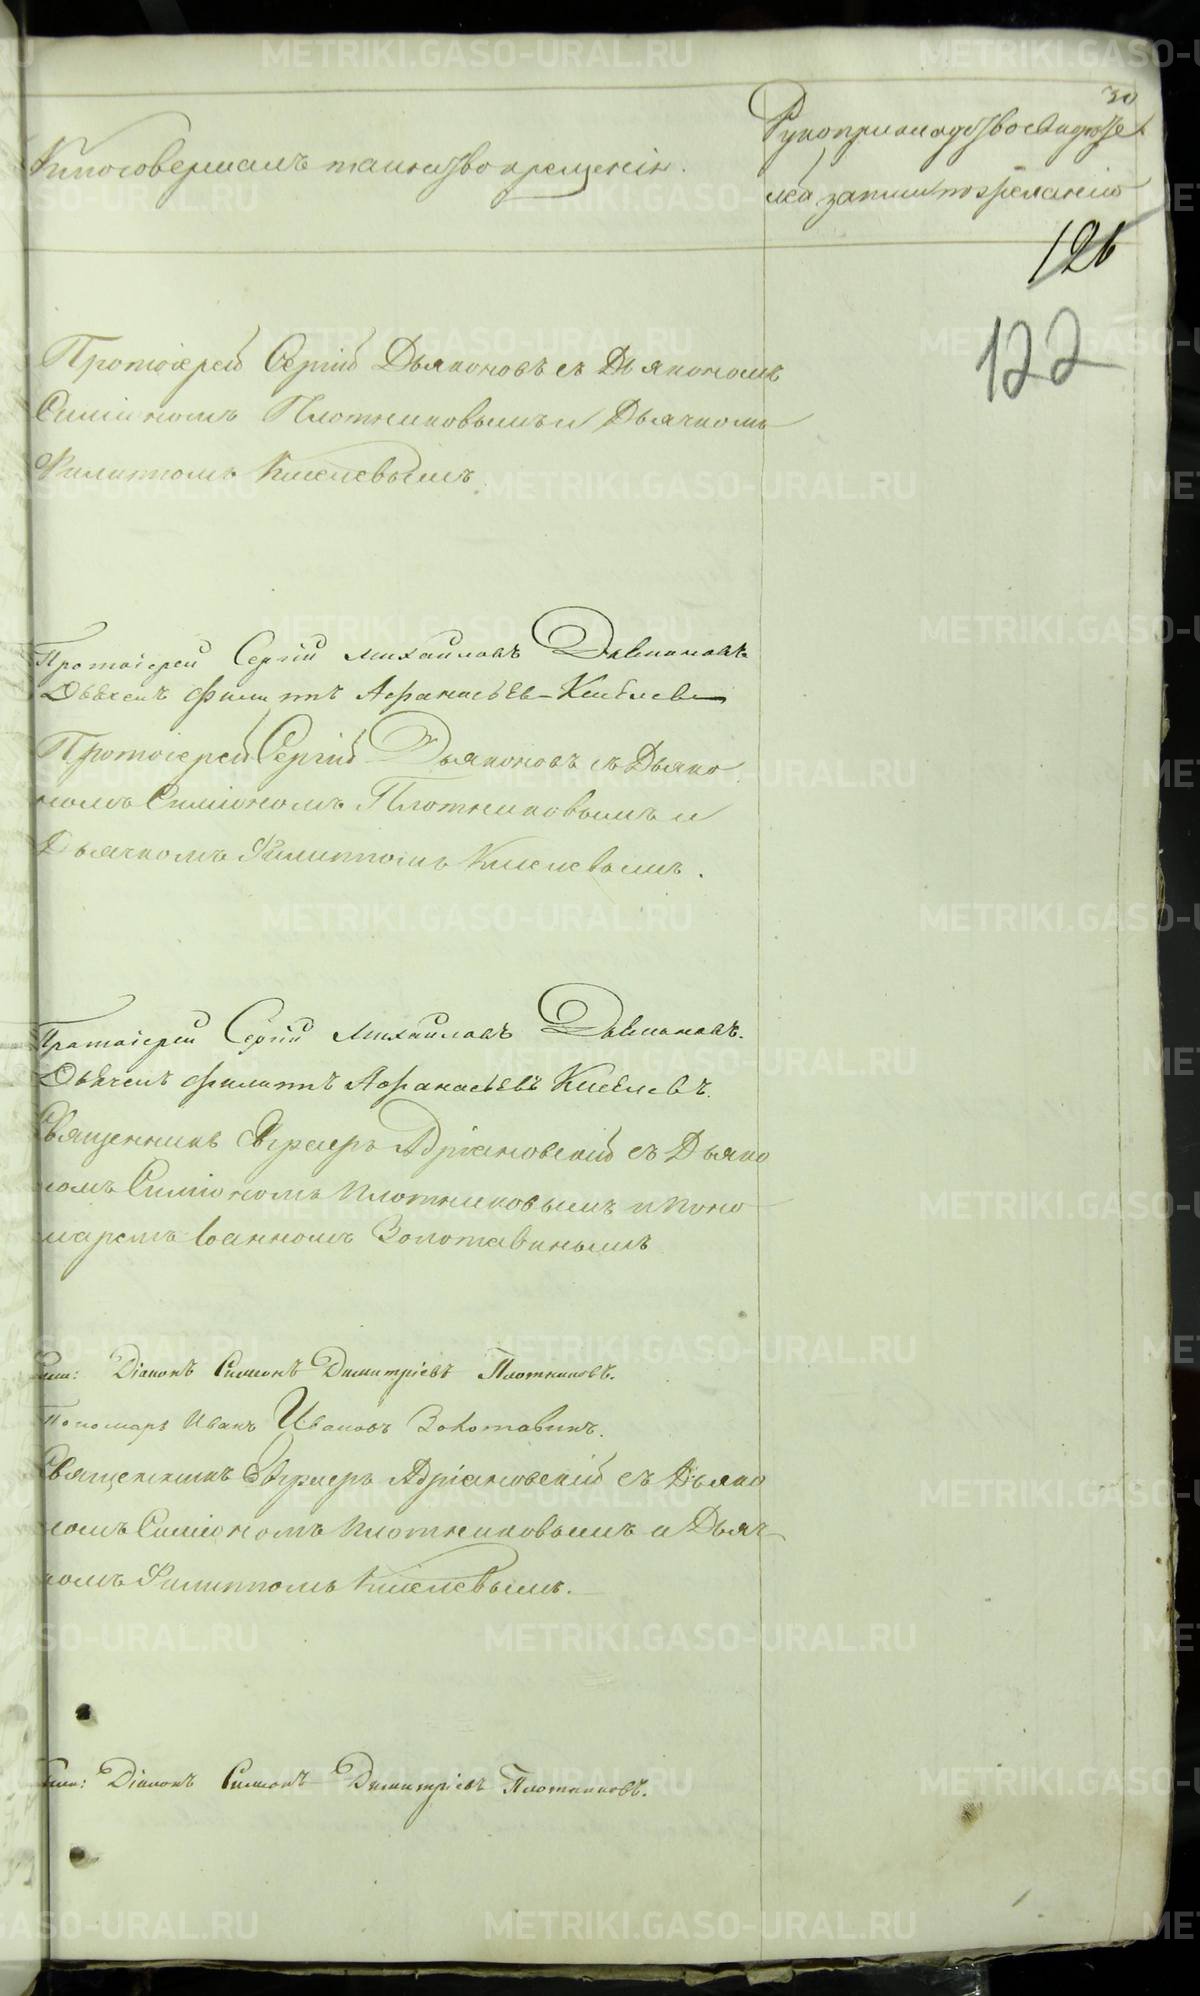 30
Кто совершалъ таинство крещенія.
Рукоприкладство свидѣте
лей записи по желанію
126
122
Протоіерей Сергій Дьяконовъ съ Дьякономъ
Симіономъ Плотниковымъ и Дьячкомъ
Филиппомъ Киселевымъ.
Протоіерей Сергій Михайловъ Дьяконовъ
Дьячекъ Филиппъ Афанасьевъ Киселевъ
Протоіерей Сергій Дьяконовъ съ Дьяко
номъ Симіономъ Плотниковымъ и
Дьячкомъ Филиппомъ Киселевымъ.
Протоіерей Сергій Михайловъ Дьяконовъ.
Дьячекъ Филиппъ Афанасьевъ Киселевъ.
Священникъ Адріановскій съ Дьяко
номъ Симіономъ Плотниковымъ и Поно
маремъ Іоанномъ Золотавинымъ
Діаконъ Симеонъ Димитріевъ Плотниковъ.
Пономарь Иванъ Ивановъ Золотавинъ.
Священникъ Адріановскій съ Дьяко
номъ Симіономъ Плотниковымъ и Дьяч
комъ Филиппомъ Киселевымъ.
Діаконъ Симеонъ Димитріевъ Плотниковъ.
METRIKI.GASO-URAL.RU